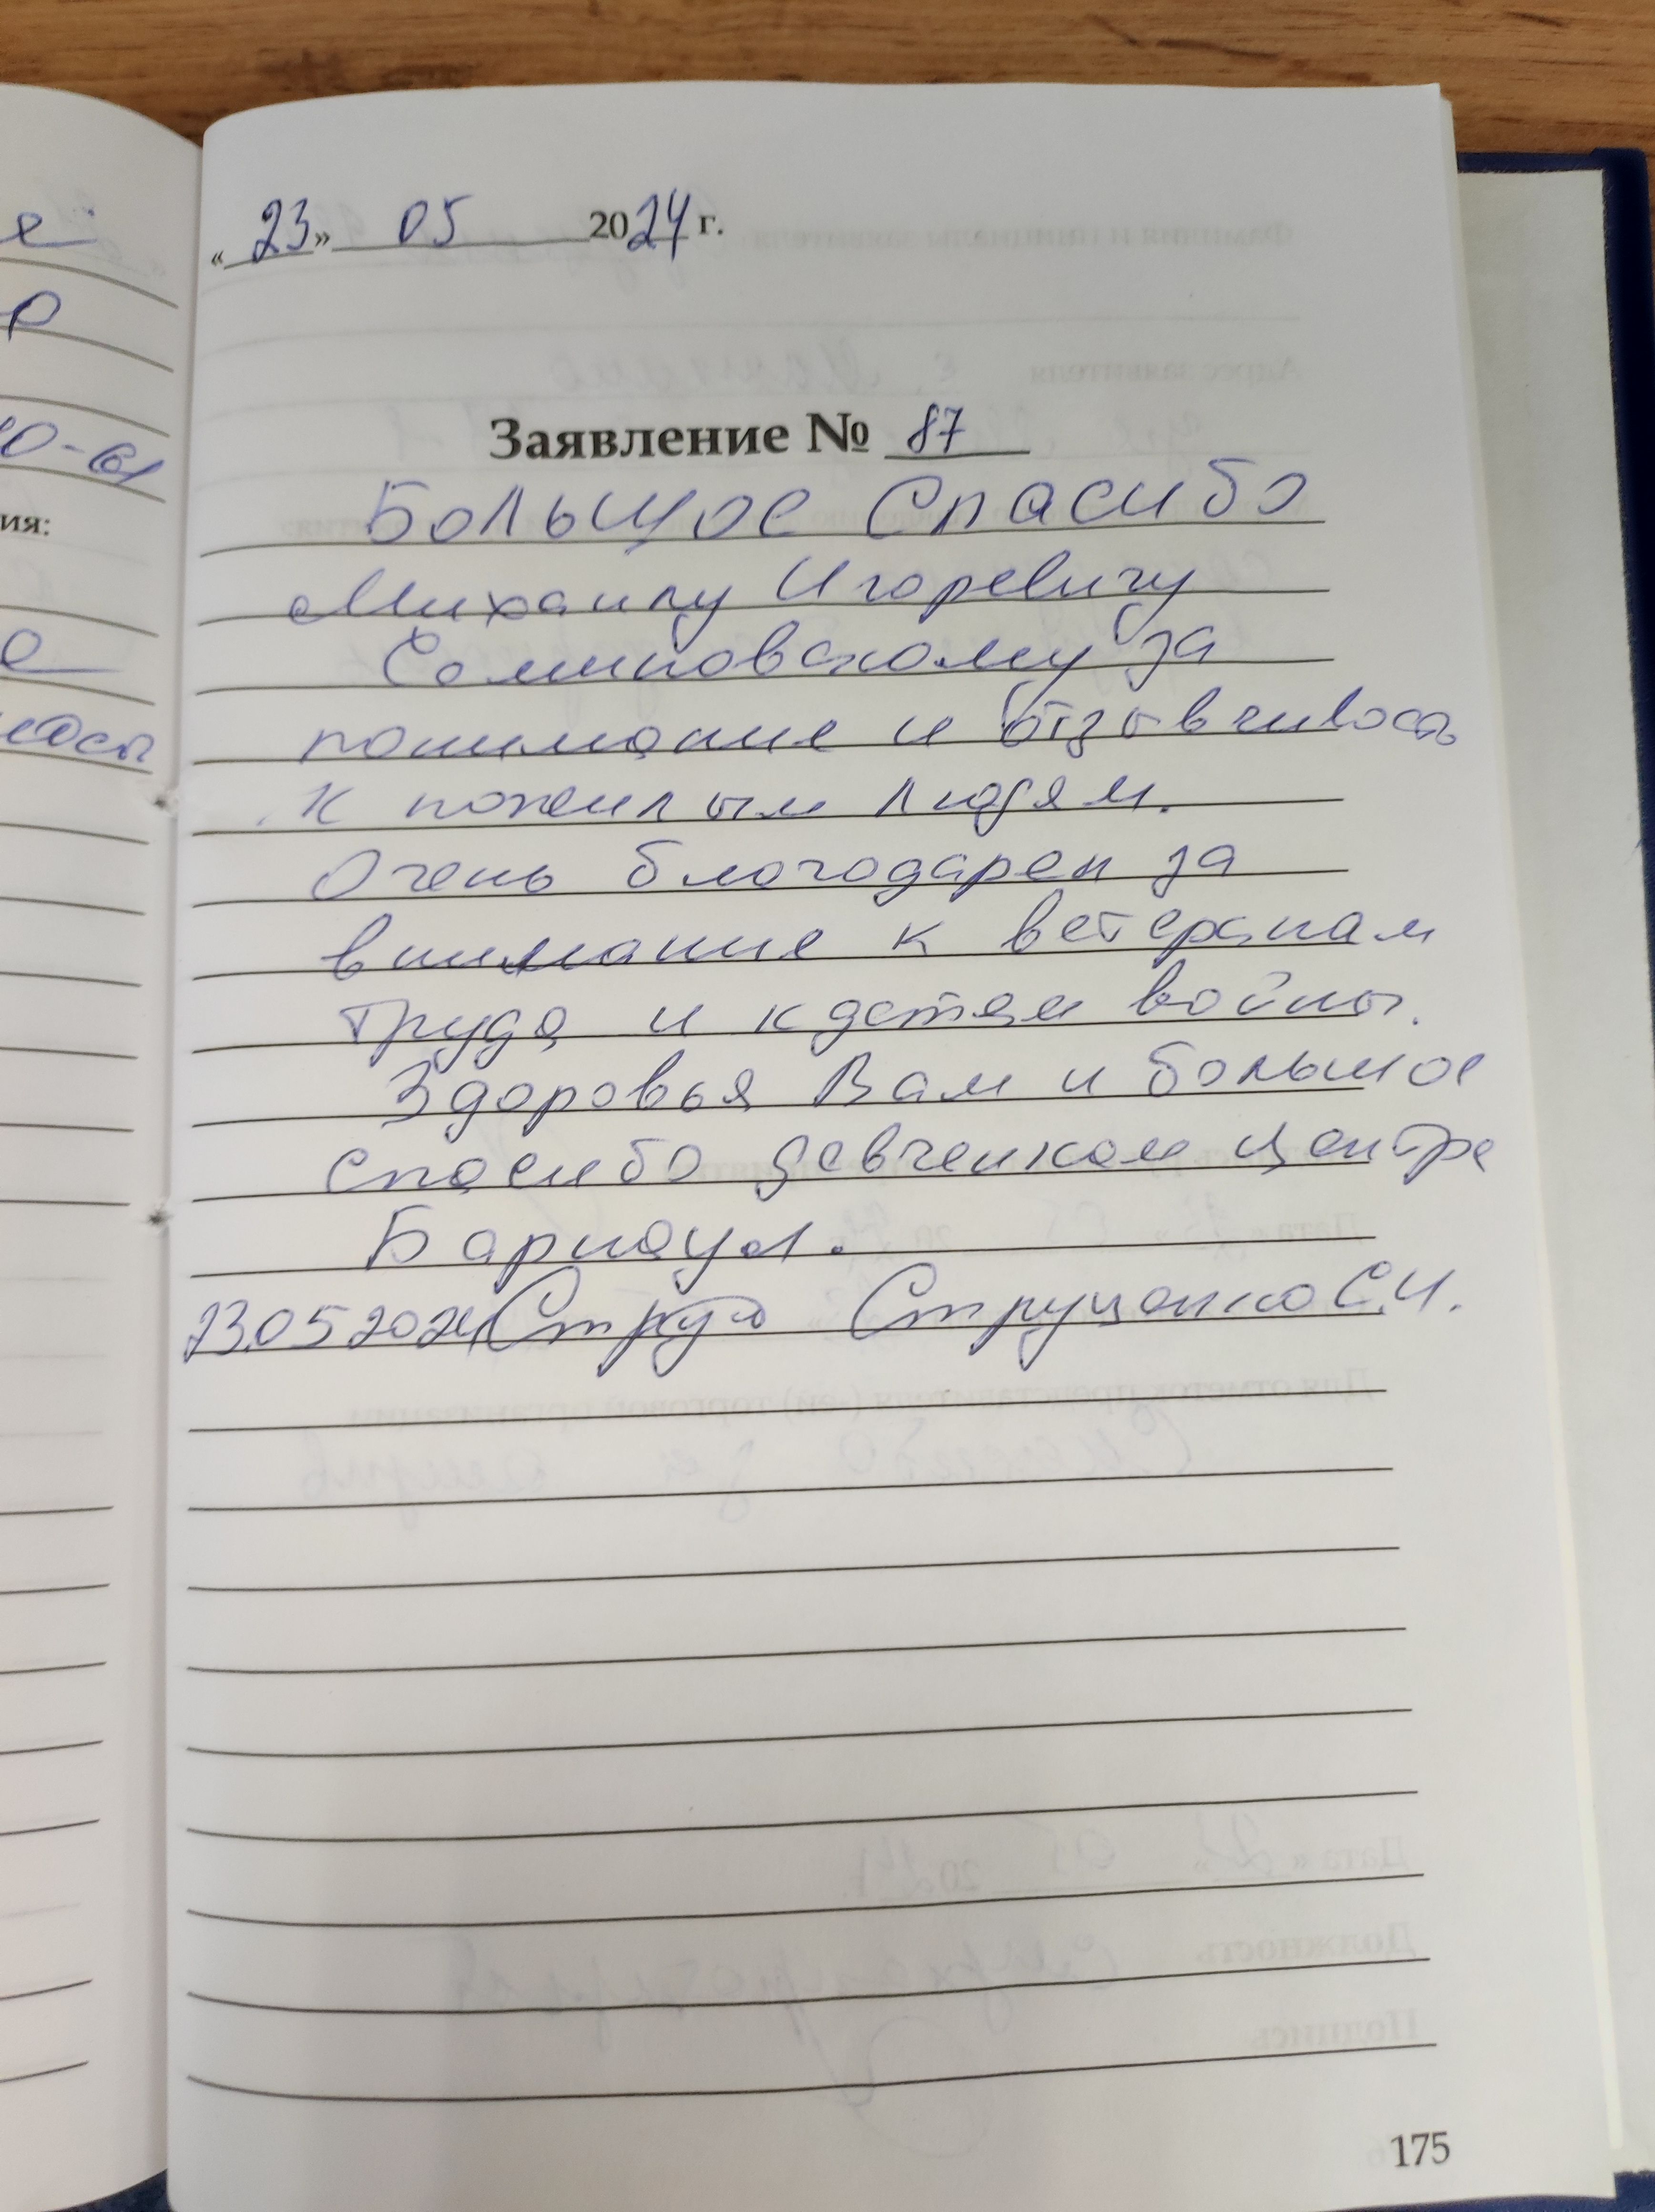 « 23 » 05 2024 г.
Заявление № 87
Большое Спасибо
Михаилу Игоревичу
за
понимание и отзывчивость
к пожилым людям.
Очень благодарен за
внимание к ветеранам
труда и к детям войны.
Здоровья Вам и большое
спасибо девченкам центра
Барнаул.
23.05 2024 Струценко С.И.
175
е
р
ия:
е